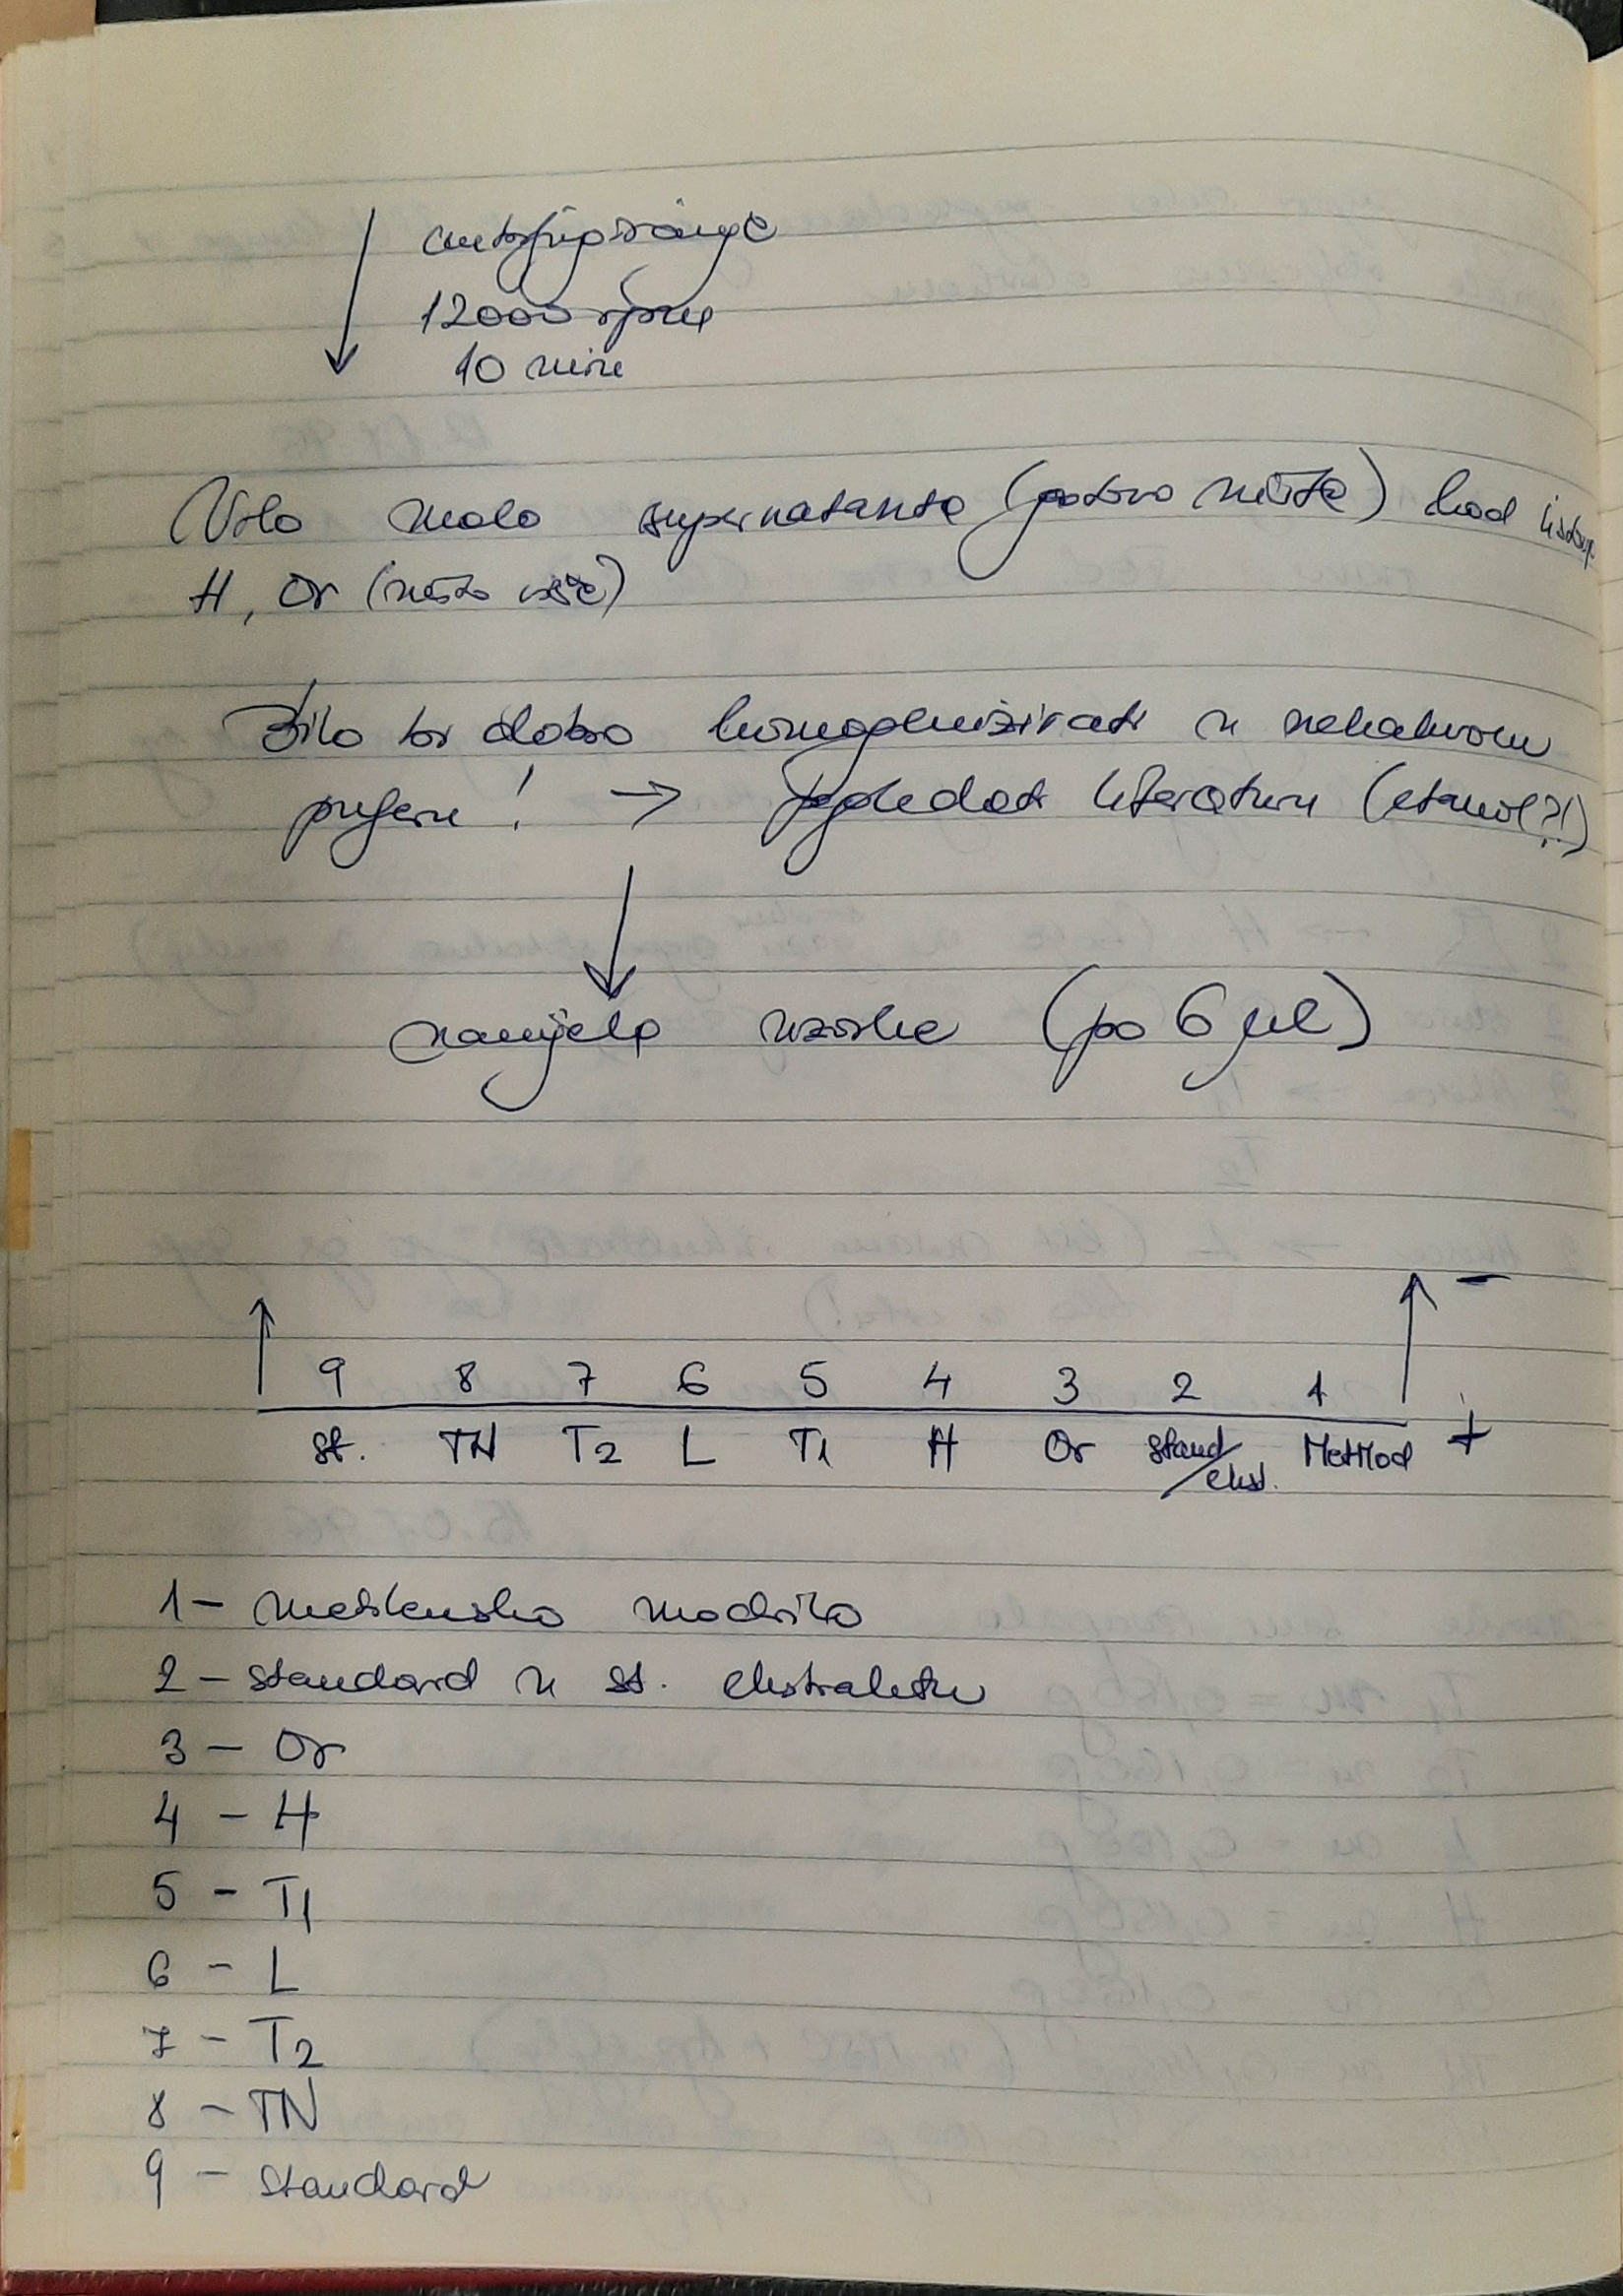 centrifugiranje
12000 rpm
10 min
Vrlo malo supernatanta (gotovo ništa) kod
H, Or (nešto više)
Bilo bi dobro homogenizirati u nekakvom
puferu! → pogledati literaturu (etanol?!)
nanijela uzorke (po 6 μl)
-
9 8 7 6 5 4 3 2 1
st. TN T2 L T1 H Or stand/ekst. MetMod +
1 - metilensko modrilo
2 - standard u st. ekstraktu
3 - Or
4 - H
5 - T1
6 - L
7 - T2
8 - TN
9 - standard